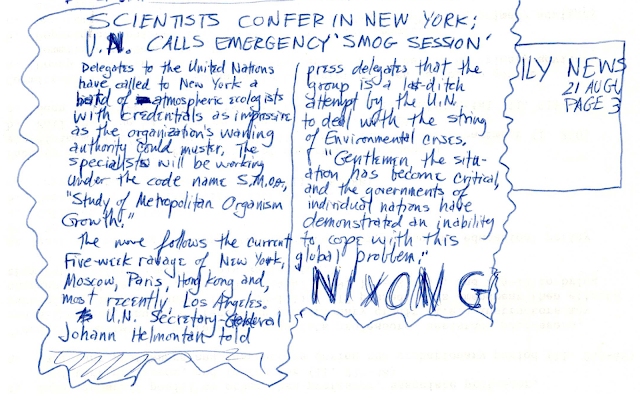 SCIENTISTS CONFER IN NEW YORK;
U.N. CALLS EMERGENCY 'SMOG SESSION'
Delegates to the United Nations
have called to New York a
band of atmospheric ecologists
with credentials as impressive
as the organization's waning
authority could muster. The
specialists will be working
under the code name S.M.O.G.,
"Study of Metropolitan Organism
Growth."
The move follows the current
Five-week ravage of New York,
Moscow, Paris, Hong Kong and,
most recently, Los Angeles.
U.N. Secretary-General
Johann Helmontan told
press delegates that the
group is a last-ditch
attempt by the U.N.
to deal with the string
of Environmental crises.
"Gentlemen, the situ-
ation has become critical,
and the governments of
individual nations have
demonstrated an inability
to cope with this
global problem."
NIXON G
ILY NEWS
21 AUGU
PAGE 3